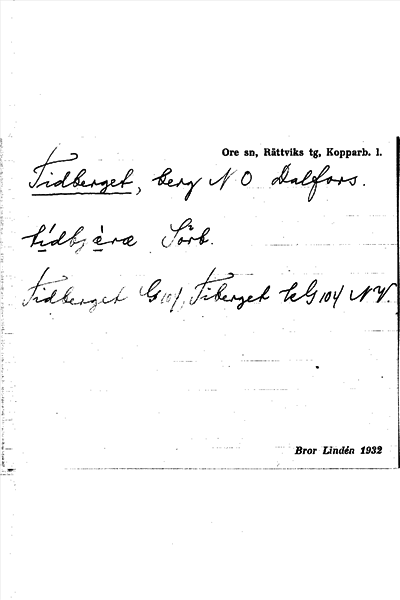 Ore sn, Rättviks tg, Kopparb. l.
Tidberget, berg N O Dalfors.
tídbjàræ Sörb.
Tidberget G 104, Tiberget kG 104 NV.
Bror Lindén 1932